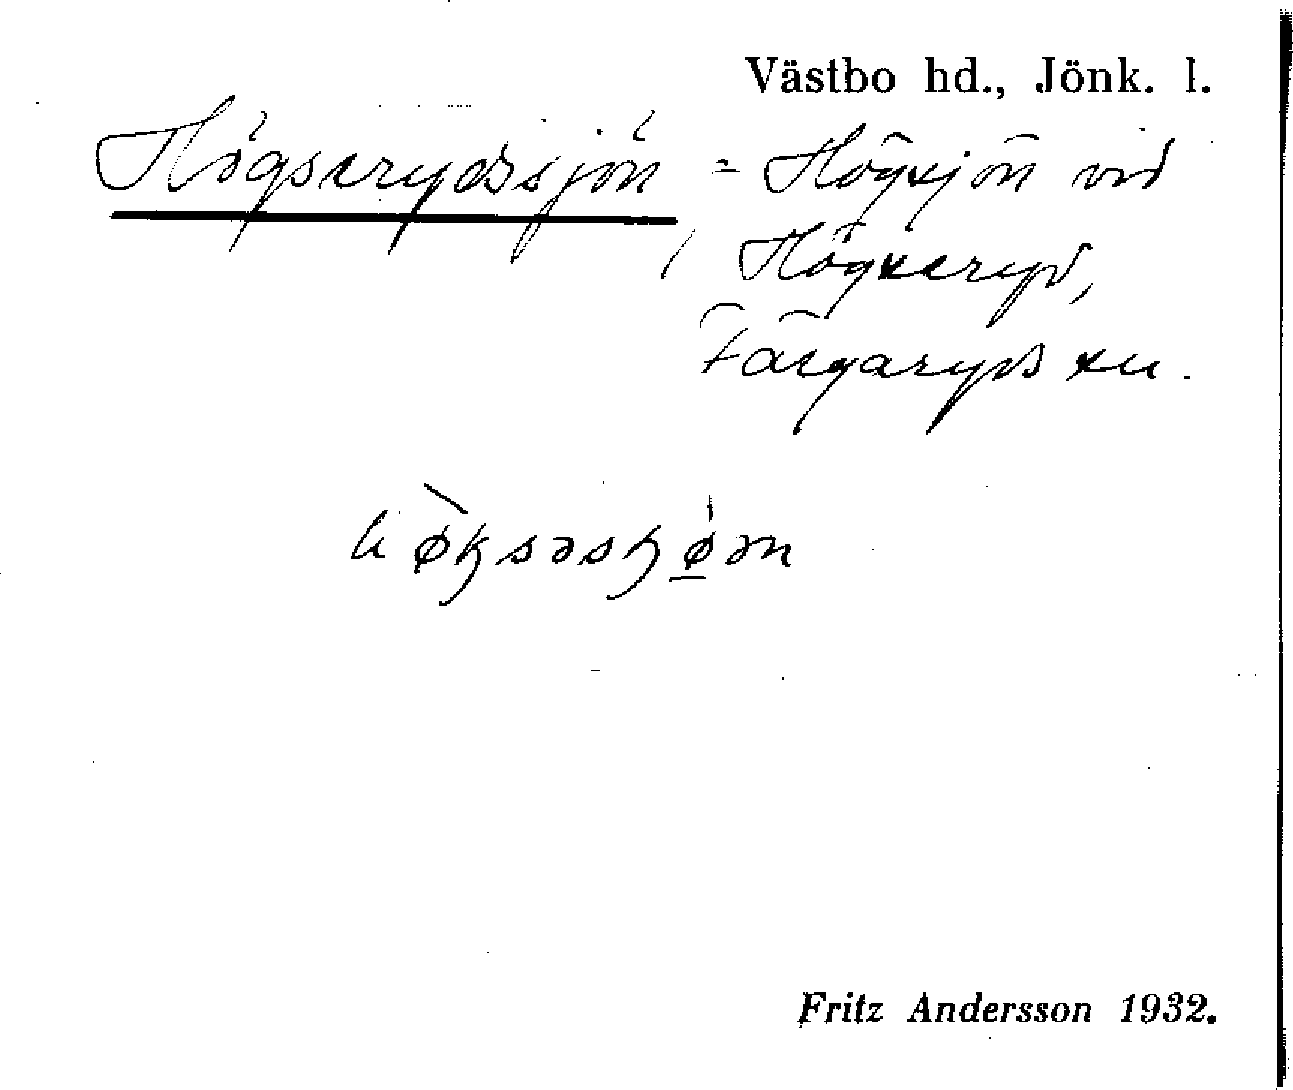 Västbo hd., Jönk. l.
Högserydssjön, = Högsjön vid
Högseryd,
Färgaryds sn.
Fritz Andersson 1932.